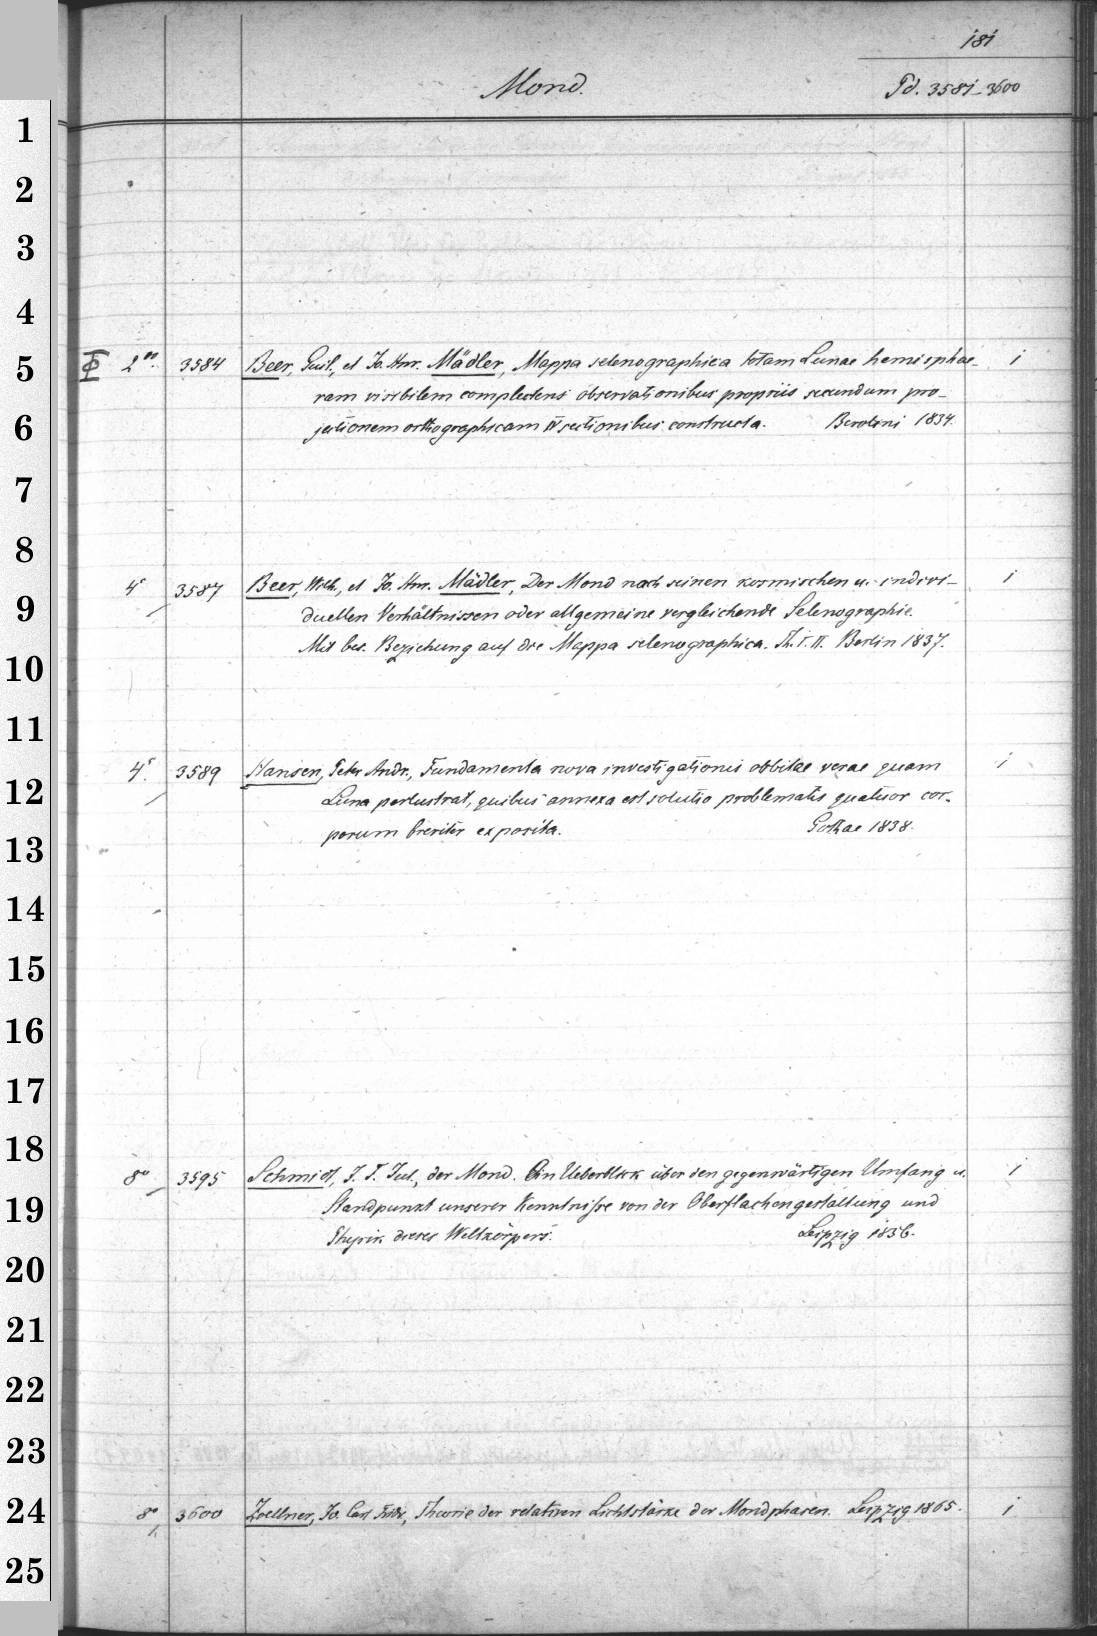 181
Mond.
Pd. 3581-3600
1
2
3
4
5
6
7
8
9
10
11
12
13
14
15
16
17
18
19
20
21
22
23
24
25
2° 3584 Beer, Guil., et Jo. Hnr. Mädler, Mappa selenographica totam Lunae hemisphae- 1
ram visibilem complectens observationibus propriis secundum pro-
jectionem orthographicam IV sectionibus constructa. Berolini 1834.
4° 3587 Beer, Wilh., et Jo. Hnr. Mädler, Der Mond nach seinen kosmischen u. indivi- 1
duellen Verhältnissen oder allgemeine vergleichende Selenographie.
Mit bes. Beziehung auf die Mappa selenographica. Th. I. II. Berlin 1837.
4° 3589 Hansen, Peter Andr., Fundamenta nova investigationis orbitae verae quam 1
Luna perlustrat, quibus annexa est solutio problematis quatuor cor-
porum breviter exposita. Gothae 1838.
8° 3595 Schmidt, J. F. Jul., der Mond. Ein Ueberblick über den gegenwärtigen Umfang u. 1
Standpunkt unserer Kenntnisse von der Oberflächengestaltung und
Physik dieses Weltkörpers. Leipzig 1856.
8° 3600 Zoellner, Jo. Carl Fridr., Theorie der relativen Lichtstärke der Mondphasen. Leipzig 1865. 1